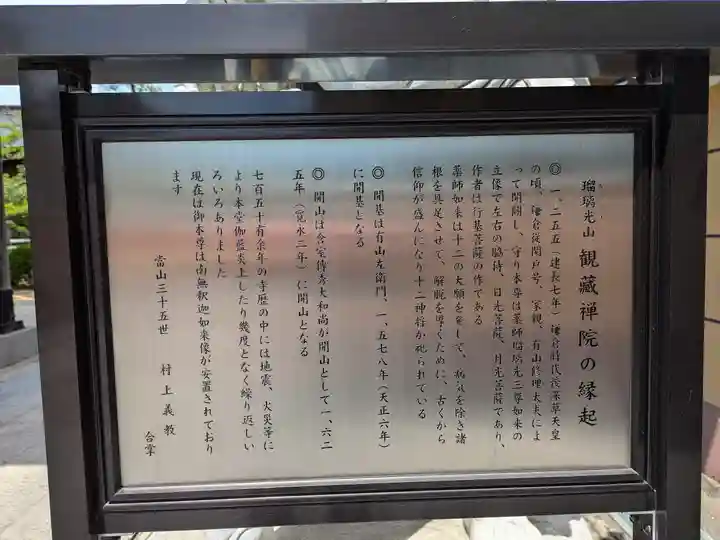 瑠璃光山 観蔵禅院の縁起
◎ 一、二五五(建長七年)鎌倉時代後深草天皇
の頃、鎌倉従関戸号、家親、有山修理太夫によ
って開闢し、守り本尊は薬師瑠璃光三尊如来の
立像で左右の脇侍、日光菩薩、月光菩薩であり、
作者は行基菩薩の作である
薬師如来は十二の大願を発して、病気を除き諸
根を具足させて、解脱を導くために、古くから
信仰が盛んになり十二神将が祀られている
◎ 開基は有山左衛門、一、五七八年(天正六年)
に開基となる
◎ 開山は含室傳秀大和尚が開山として一、六二
五年(寛永二年)に開山となる
七百五十有余年の寺歴の中には地震、火災等に
より本堂伽藍炎上したり幾度となく繰り返しい
ろいろありました
現在は御本尊は南無釈迦如来像が安置されており
ます
當山三十五世 村上義教 合掌